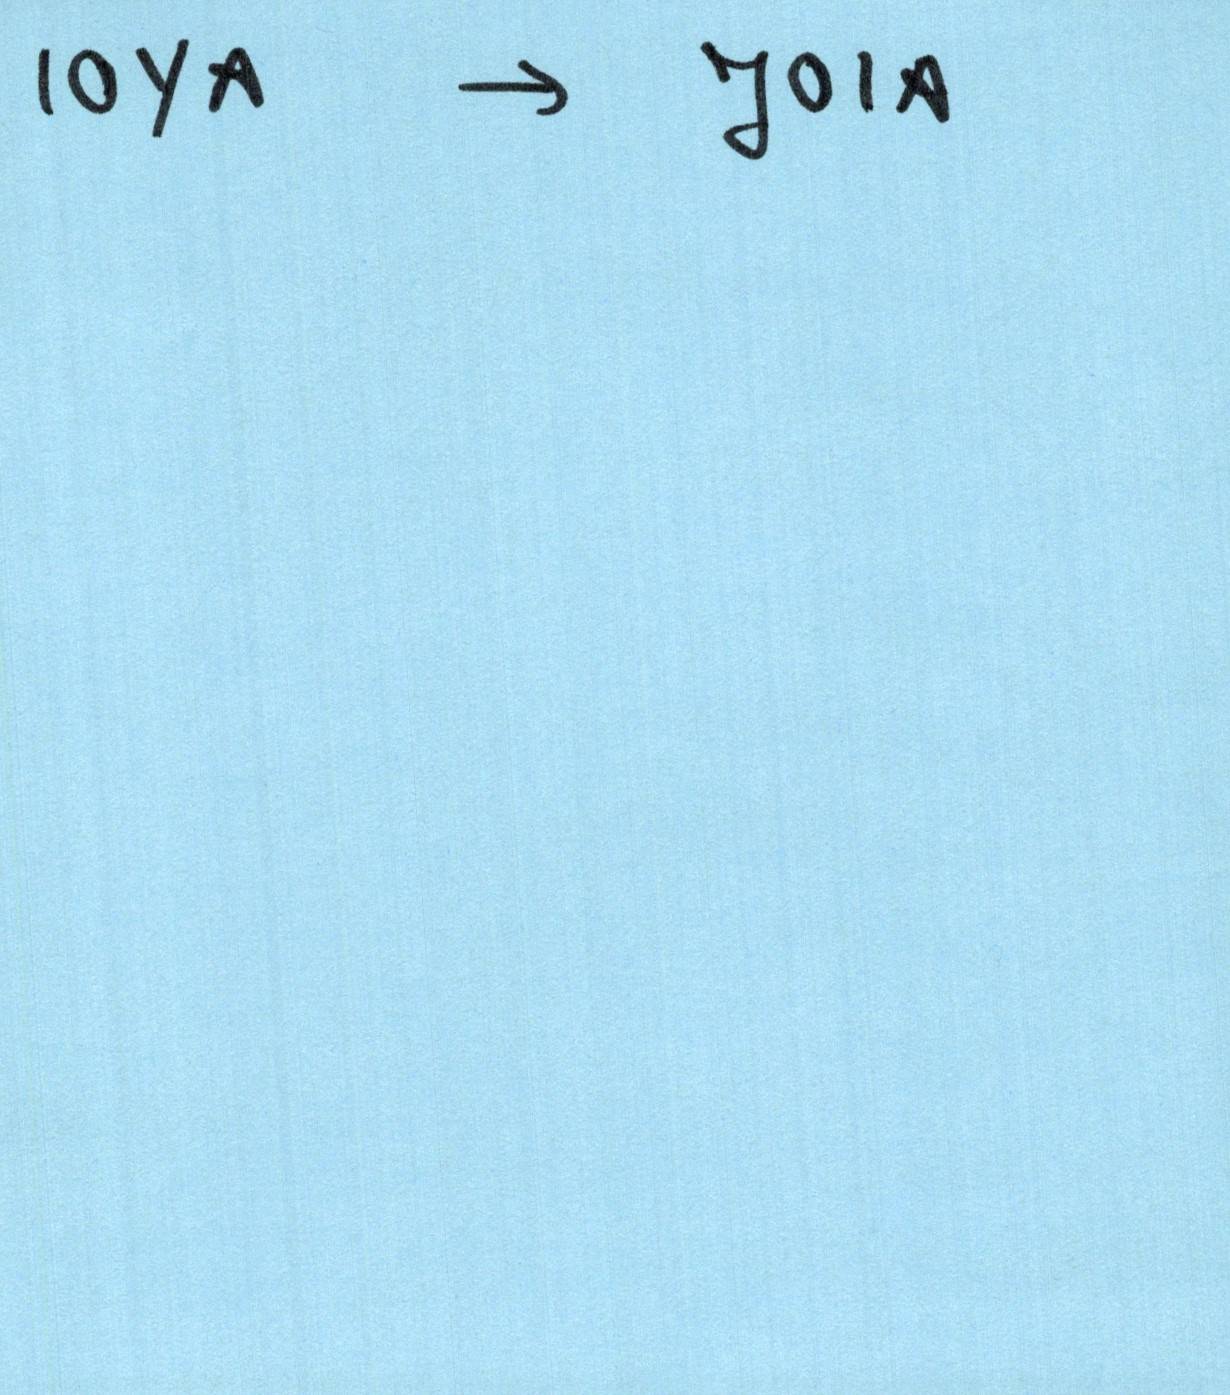 IOYA → JOIA